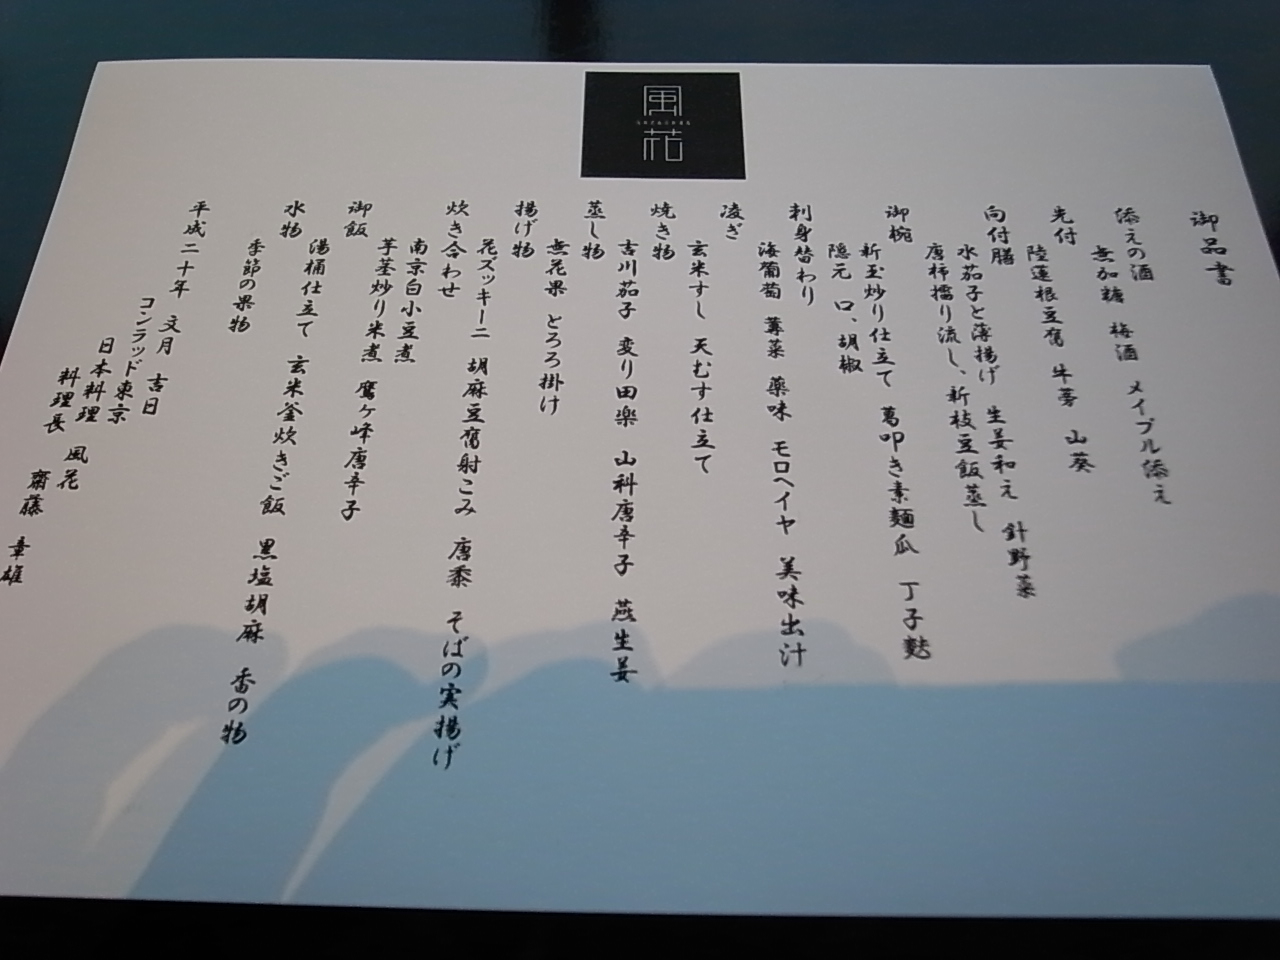 風花
御品書
添えの酒
無加糖 梅酒 メイプル添え
先付
陸蓮根豆腐 牛蒡 山葵
向付膳
水茄子と薄揚げ 生姜和え 針野菜
唐柿擂り流し、新枝豆飯蒸し
御椀
新玉炒り仕立て 葛叩き素麺瓜 丁子麩
隠元 口、胡椒
刺身替わり
海葡萄 蓴菜 薬味 モロヘイヤ 美味出汁
凌ぎ
玄米すし 天むす仕立て
焼き物
吉川茄子 変り田楽 山科唐辛子 燕生姜
蒸し物
無花果 とろろ掛け
揚げ物
花ズッキーニ 胡麻豆腐射こみ 唐黍 そばの実揚げ
炊き合わせ
南京白小豆煮
芋茎炒り米煮 鷹ヶ峰唐辛子
御飯
湯桶仕立て 玄米釜炊きご飯 黒塩胡麻 香の物
水物
季節の果物
平成二十年 文月 吉日
コンラッド東京
日本料理 風花
料理長 齋藤 章雄